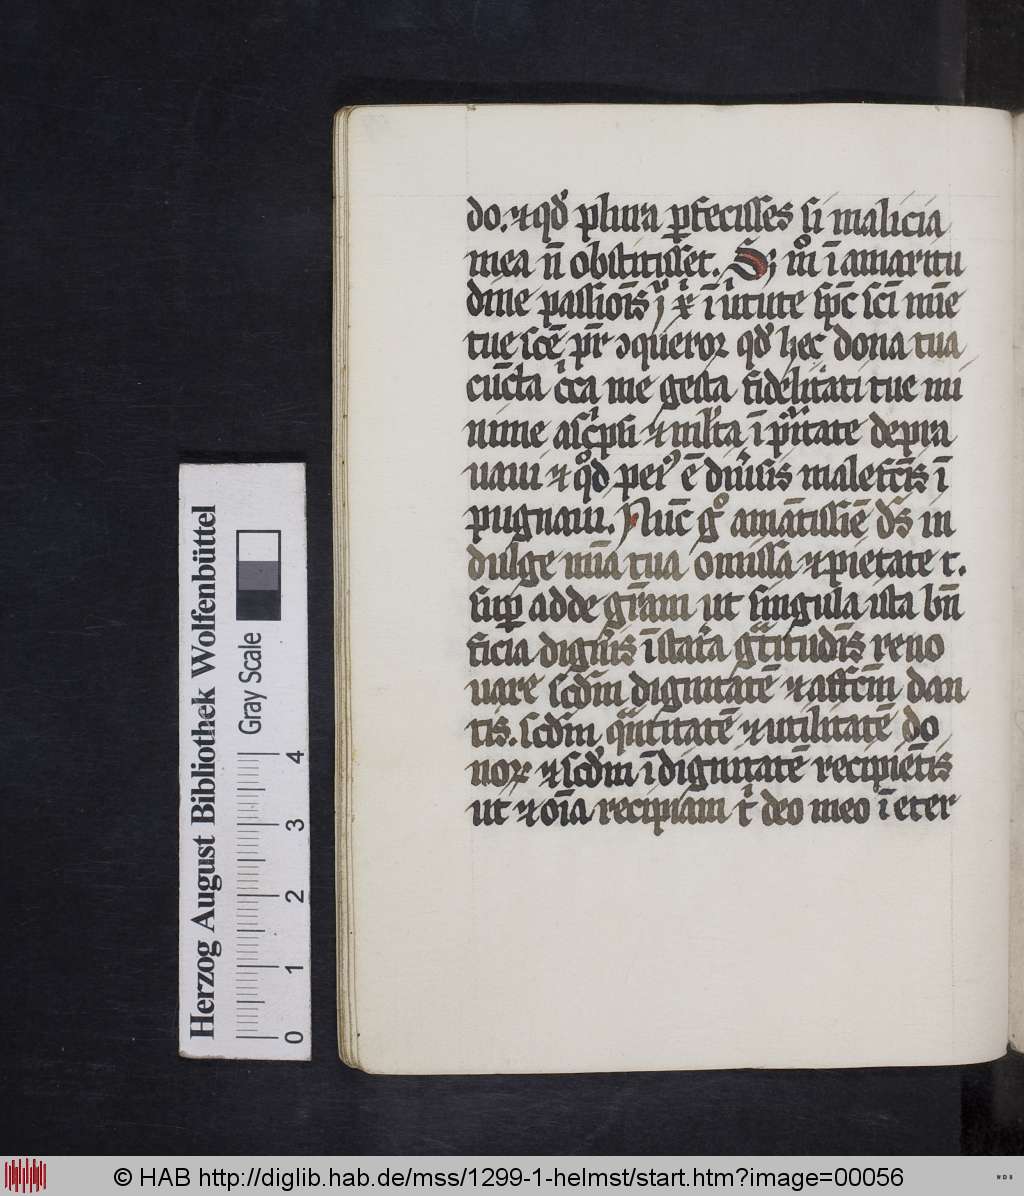 do. ⁊ qd᷎ plura ꝑfecisses si malicia
mea n̄ obstitisset. S; m̊ ī amaritu
dine passiōīs ī ut᷎ute sp̄c sc̄i mīe
tue sc̄e pr̄ ꝯqueror qd᷎ hec dona tua
cūcta c᷎ca me gesta fidelitati tue mi
nime asc᷎psi ⁊ ml᷎ta ī depra
uaui ⁊ qd᷎ ē diu᷎sis malefc̄is ī
pugnaui. Nūc g̊ amātissīe ds̄ in
dulge mīa tua om̄issa ⁊ pietate t.
suꝑ adde gr̄am ut singula ista bn̄
ficia dignis īstar̄a gͣtitudīs reno
uare scd̄m dignitatē ⁊ affc̄m dan
tis. scd̄m qͣntitatē ⁊ utilitatē do
noꝝ ⁊ scd̄m īdignitatē recipiētis
ut ⁊ oīa recipiam t᷎ deo meo ī eter
Herzog August Bibliothek Wolfenbüttel
Gray Scale
0 1 2 3 4
© HAB http://diglib.hab.de/mss/1299-1-helmst/start.htm?image=00056